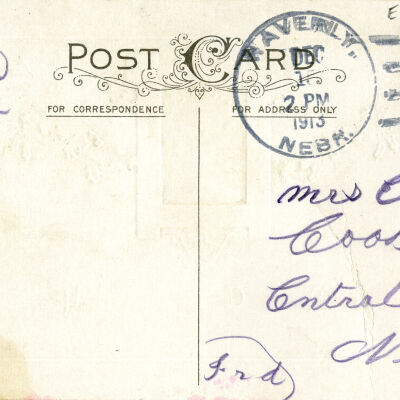 POST CARD
FOR CORRESPONDENCE
FOR ADDRESS ONLY
WAVERLY,
DEC
1
2 PM
1913
NEBR.
Mrs C
Coos
Central
N
Frd